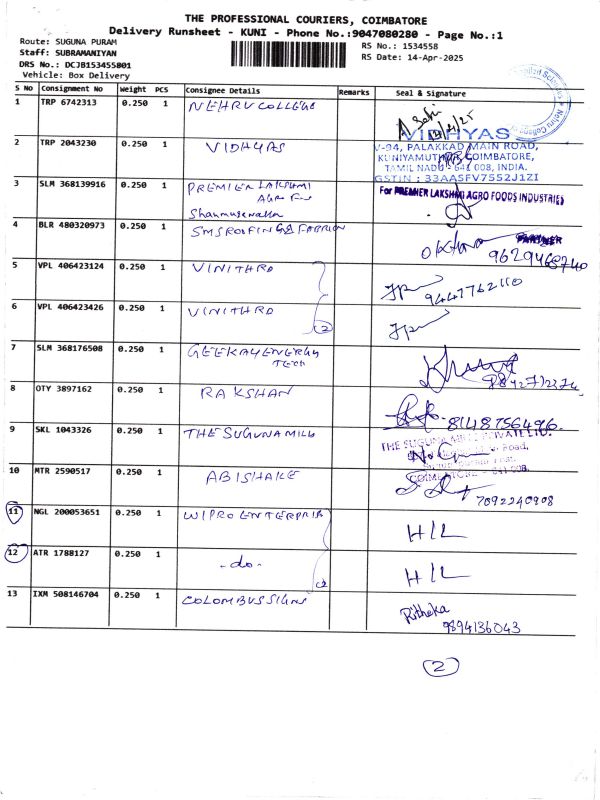 THE PROFESSIONAL COURIERS, COIMBATORE
Delivery Runsheet - KUNI - Phone No.:9047080280 - Page No.:1
Route: SUGUNA PURAM
Staff: SUBRAMANIYAN
DRS No.: DCJB153455801
Vehicle: Box Delivery
RS No.: 1534558
RS Date: 14-Apr-2025
S No Consignment No Weight PCS Consignee Details Remarks Seal & Signature
1 TRP 6742313 0.250 1 NEHRU COLLEGE
2 TRP 2043230 0.250 1 VIDHYAS
VIDHYAS
V-94, PALAKKAD MAIN ROAD,
KUNIYAMUTHUR, COIMBATORE,
TAMIL NADU - 641 008, INDIA.
GSTIN : 33AASFV7552J1ZI
3 SLM 368139916 0.250 1 PREMIER LAKSHMI
AGRO
For PREMIER LAKSHMI AGRO FOODS INDUSTRIES
PARTNER
4 BLR 480320973 0.250 1 SMS ROOFING & FABRICN
9629468740
5 VPL 406423124 0.250 1 VINITHRA
9447762110
6 VPL 406423426 0.250 1 VINITHRA
2
7 SLM 368176508 0.250 1 GEEKAY ENERGY
TECH
8 OTY 3897162 0.250 1 RAKSHAN
8148756496
9 SKL 1043326 0.250 1 THE SUGUNA MILL
THE SUGUNA MILLS PRIVATE LTD.
COIMBATORE - 641 008.
10 MTR 2590517 0.250 1 ABISHAKE
7092240908
11 NGL 200053651 0.250 1 WIPRO ENTERPRIS
H/L
12 ATR 1788127 0.250 1 -do-
2
H/L
13 IXM 508146704 0.250 1 COLOMBUS SIGNS
Ritheka
9894136043
2